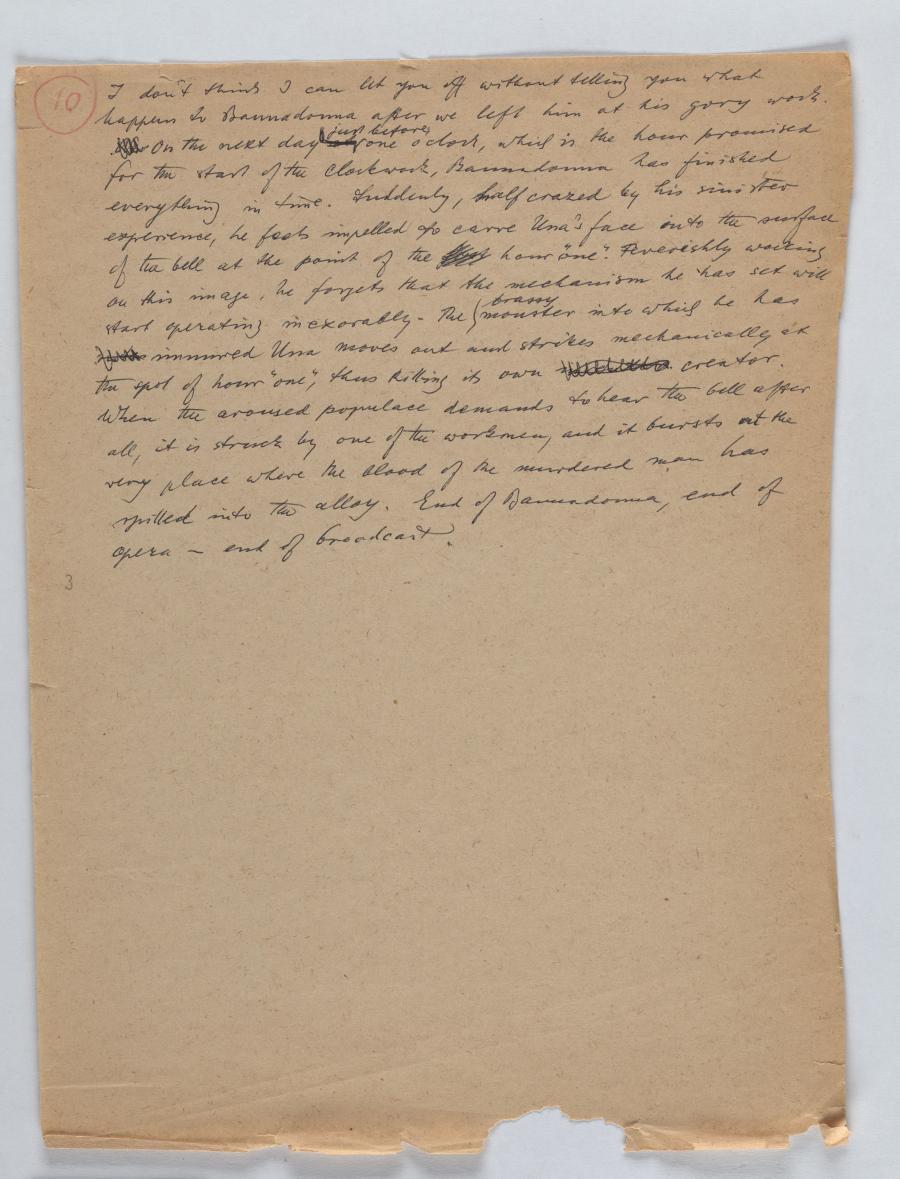 10
I don't think I can let you off without telling you what
happens to Bannadonna after we left him at his gory work.
On the next day just before one o'clock, which is the hour promised
for the start of the clockwork, Bannadonna has finished
everything in time. Suddenly, half crazed by his sinister
experience, he feels impelled to carve Una's face into the surface
of the bell at the point of the hour "one". Feverishly working
on this image, he forgets that the mechanism he has set will
start operating inexorably. The brassy monster into which he has
immured Una moves out and strikes mechanically at
the spot of hour "one", thus killing its own creator.
When the aroused populace demands to hear the bell after
all, it is struck by one of the workmen, and it bursts at the
very place where the blood of the murdered man has
spilled into the alloy. End of Bannadonna, end of
opera – end of broadcast.
3